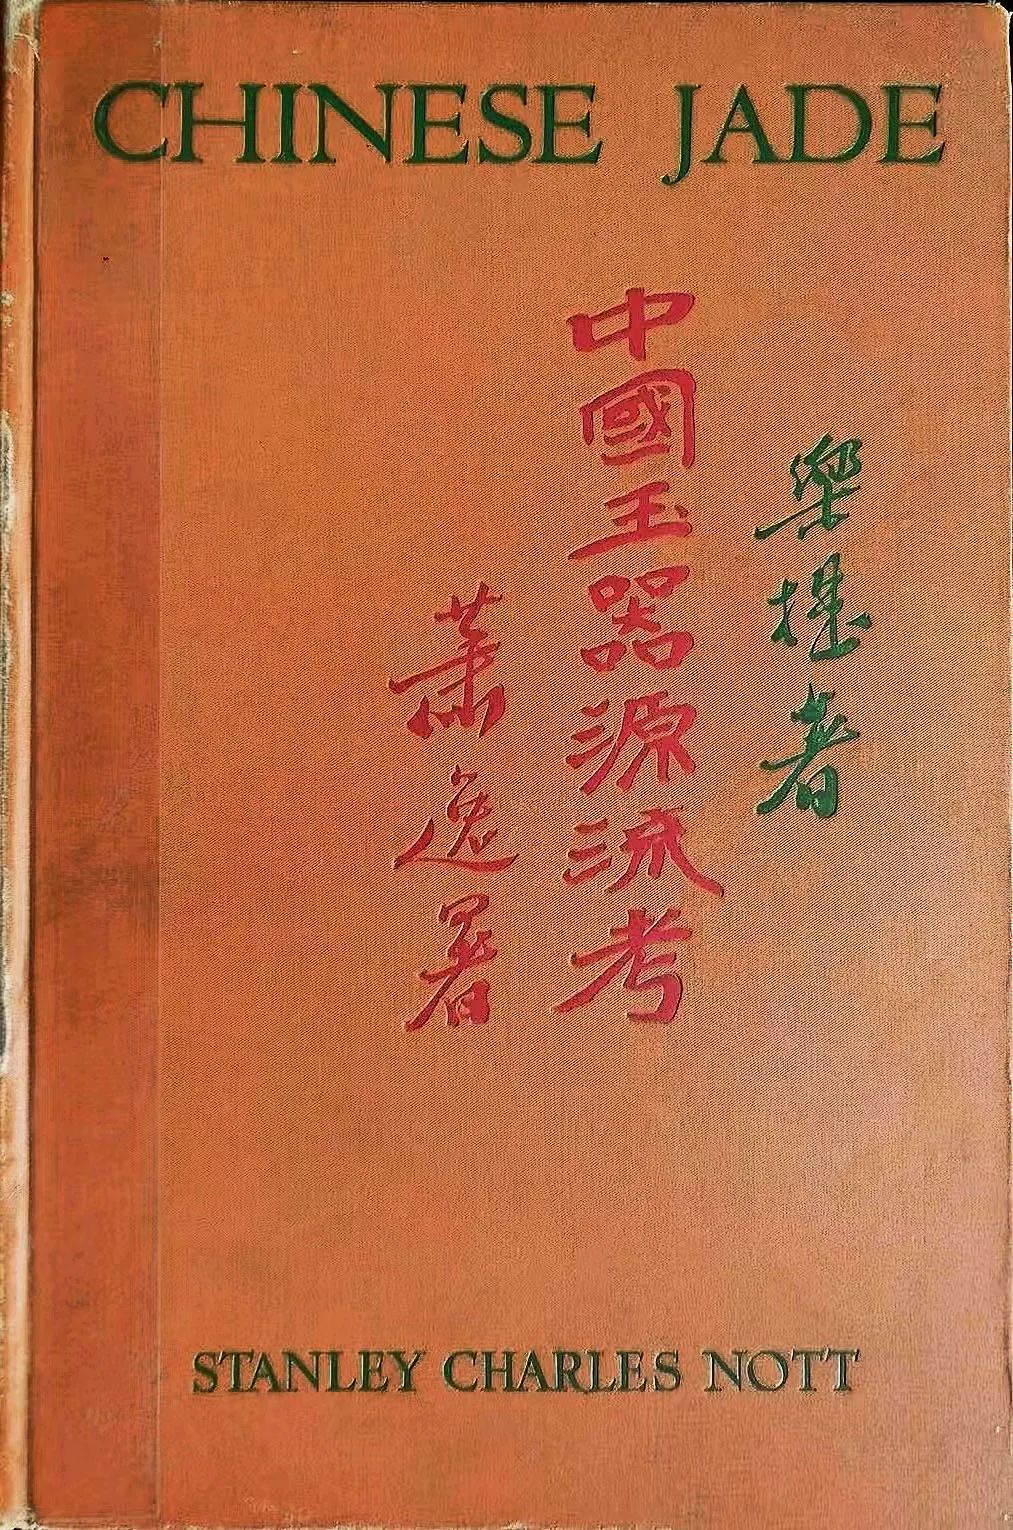 CHINESE JADE
樂提者
中國玉器源流考
蕭逸署
STANLEY CHARLES NOTT